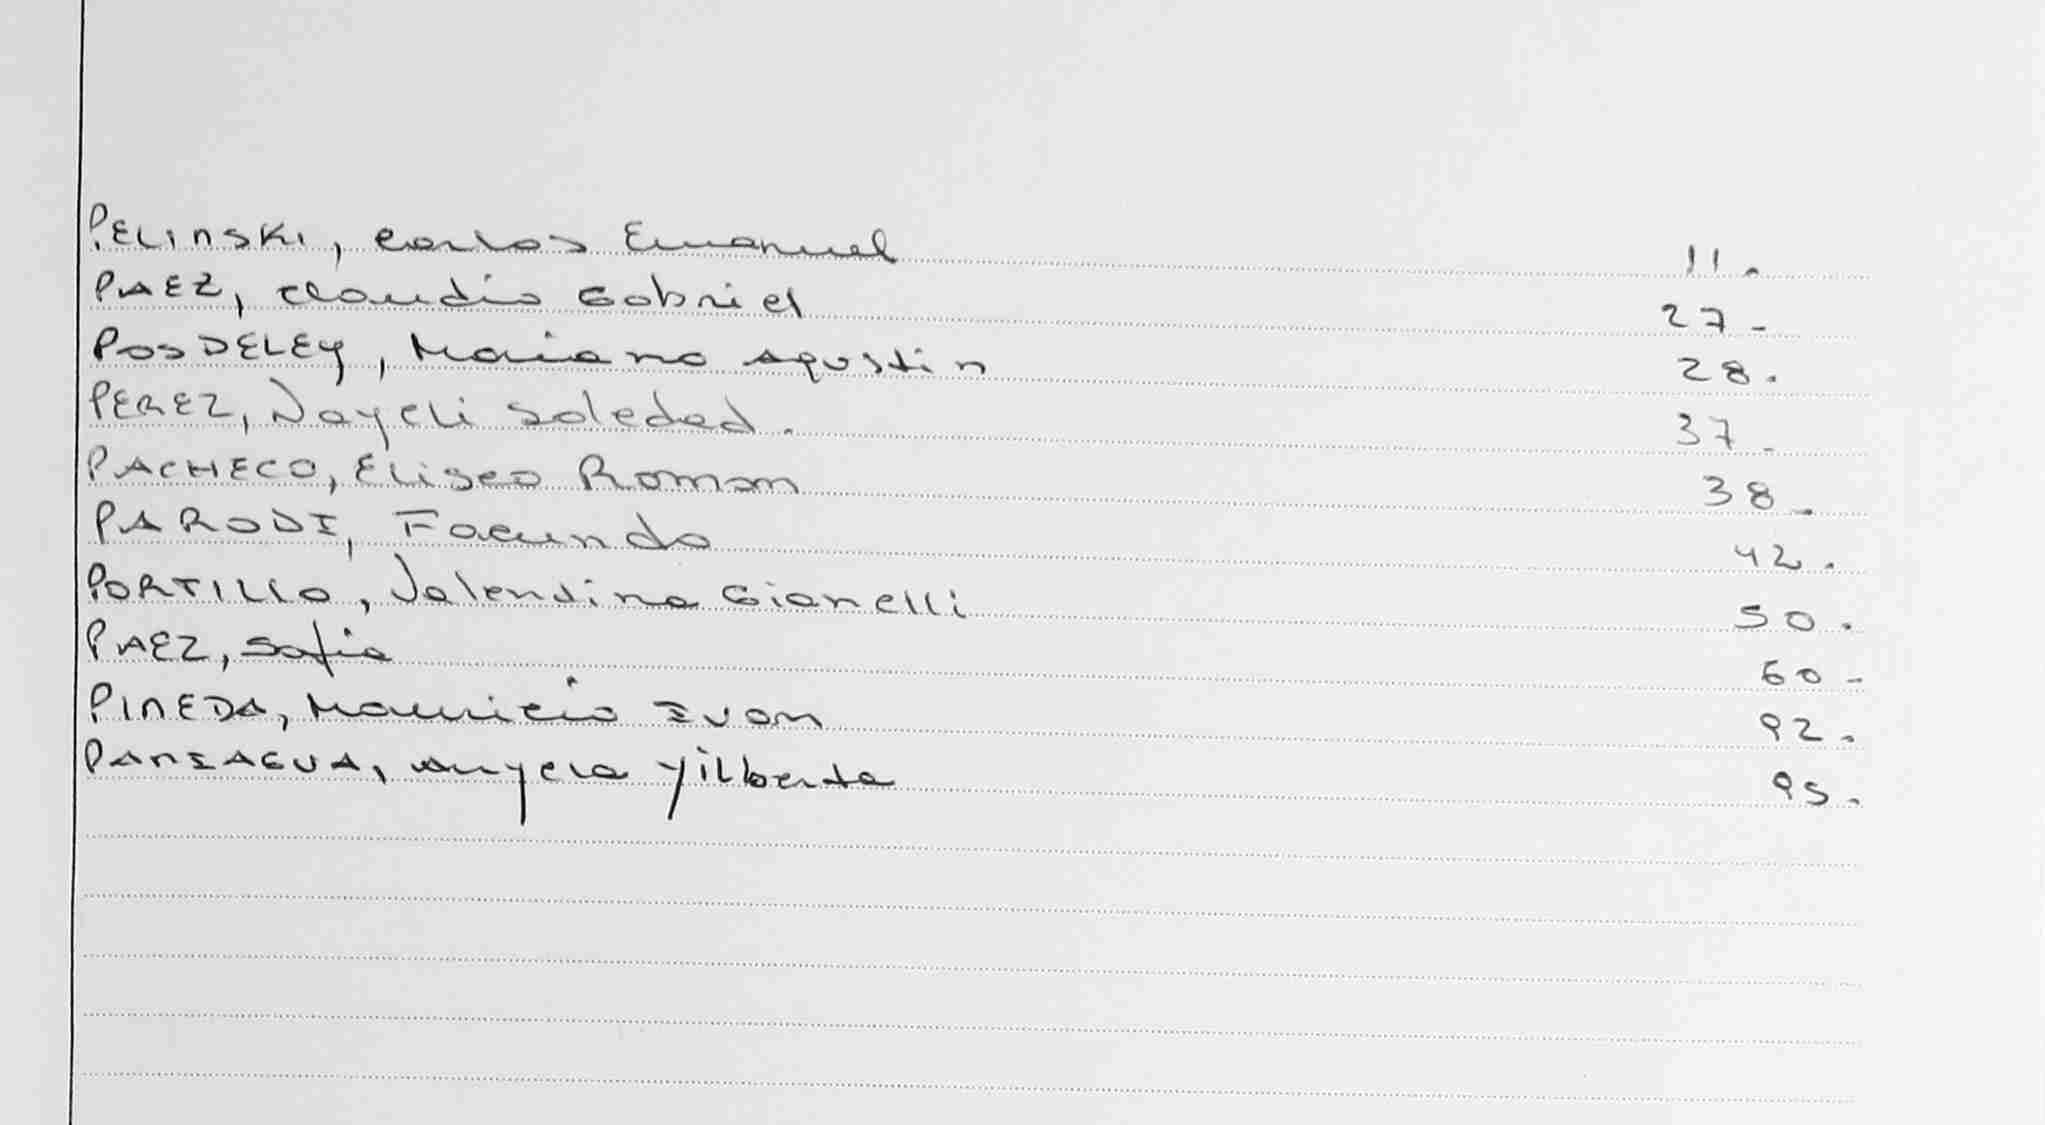 PELINSKI, Carlos Emanuel 11.
PAEZ, Claudio Gabriel 27-
POSDELEY, Maiano Agustin 28.
PEREZ, Nayeli Soledad. 37-
PACHECO, Eliseo Roman 38-
PARODI, Facundo 42.
PORTILLO, Valentina Gianelli 50.
PAEZ, Sofia 60-
PINEDA, Mauricio Ivan 92.
PANIAGUA, Angela Yilberta 95.